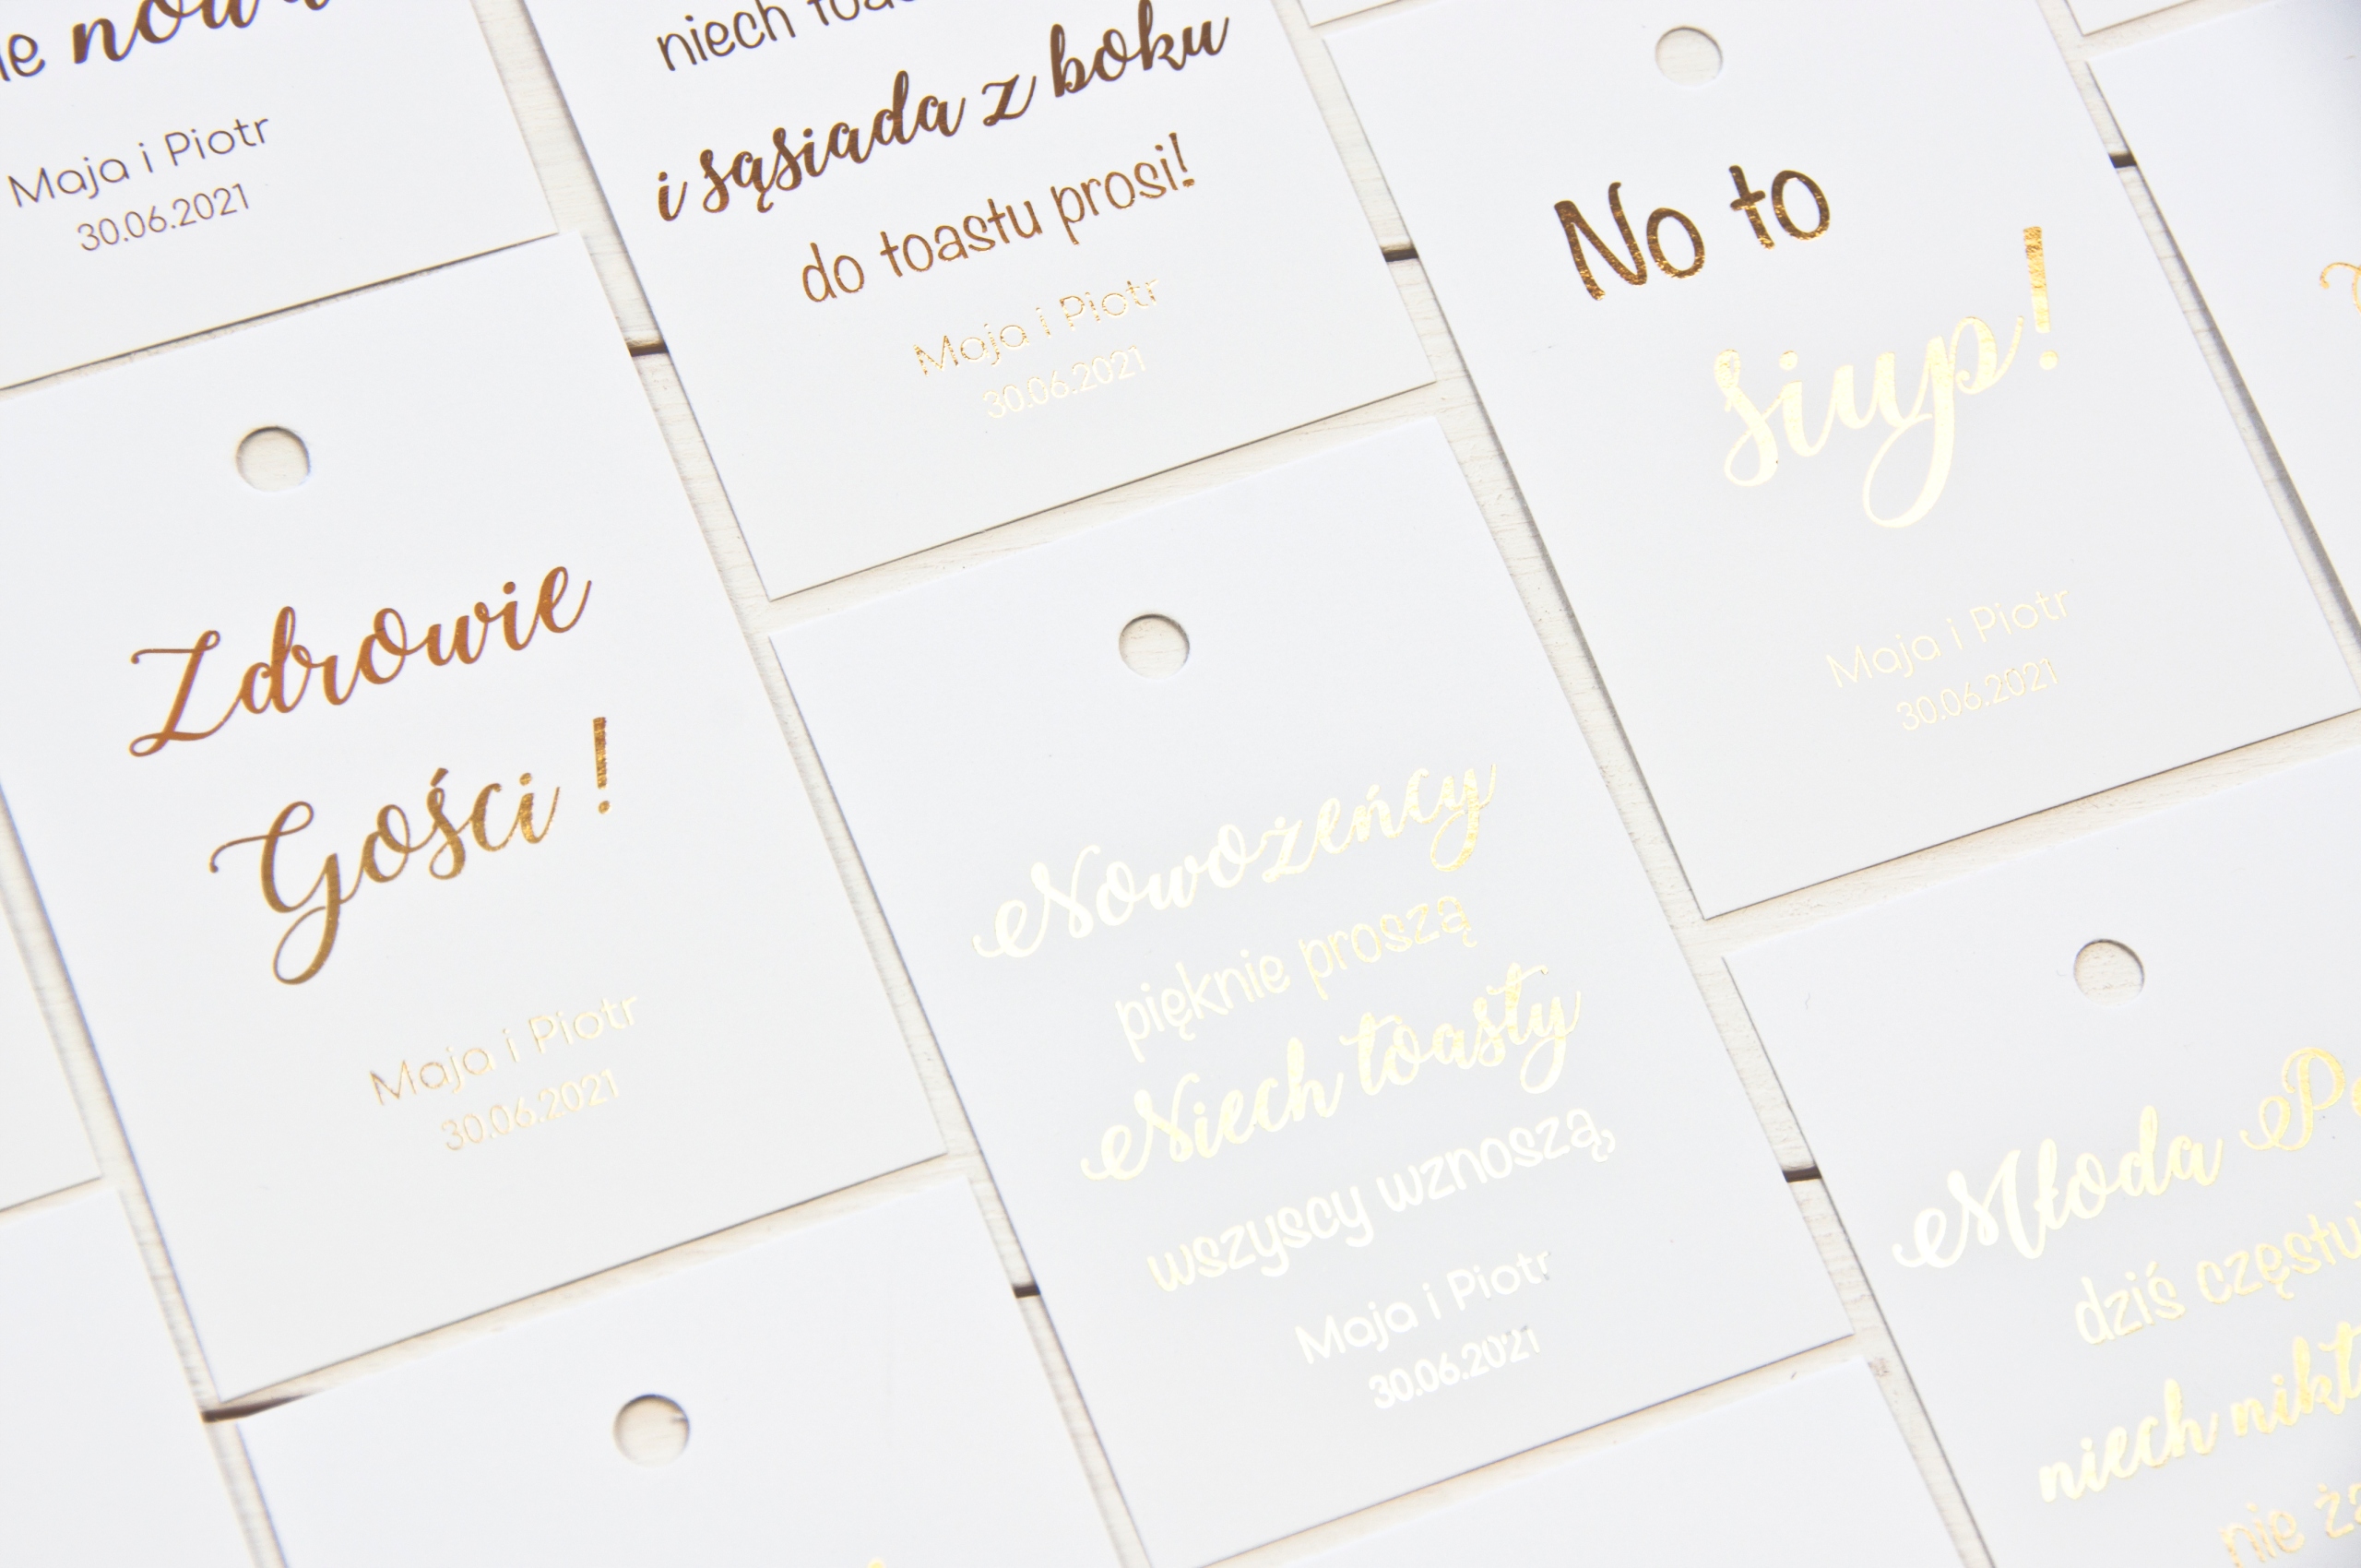 Maja i Piotr
30.06.2021
niech
i sąsiada z boku
do toastu prosi!
Maja i Piotr
30.06.2021
No to
siup!
Maja i Piotr
30.06.2021
Zdrowie
Gości !
Maja i Piotr
30.06.2021
Nowożeńcy
pięknie proszą
Niech toasty
wszyscy wznoszą,
Maja i Piotr
30.06.2021
Młoda
dziś
niech nikt
nie